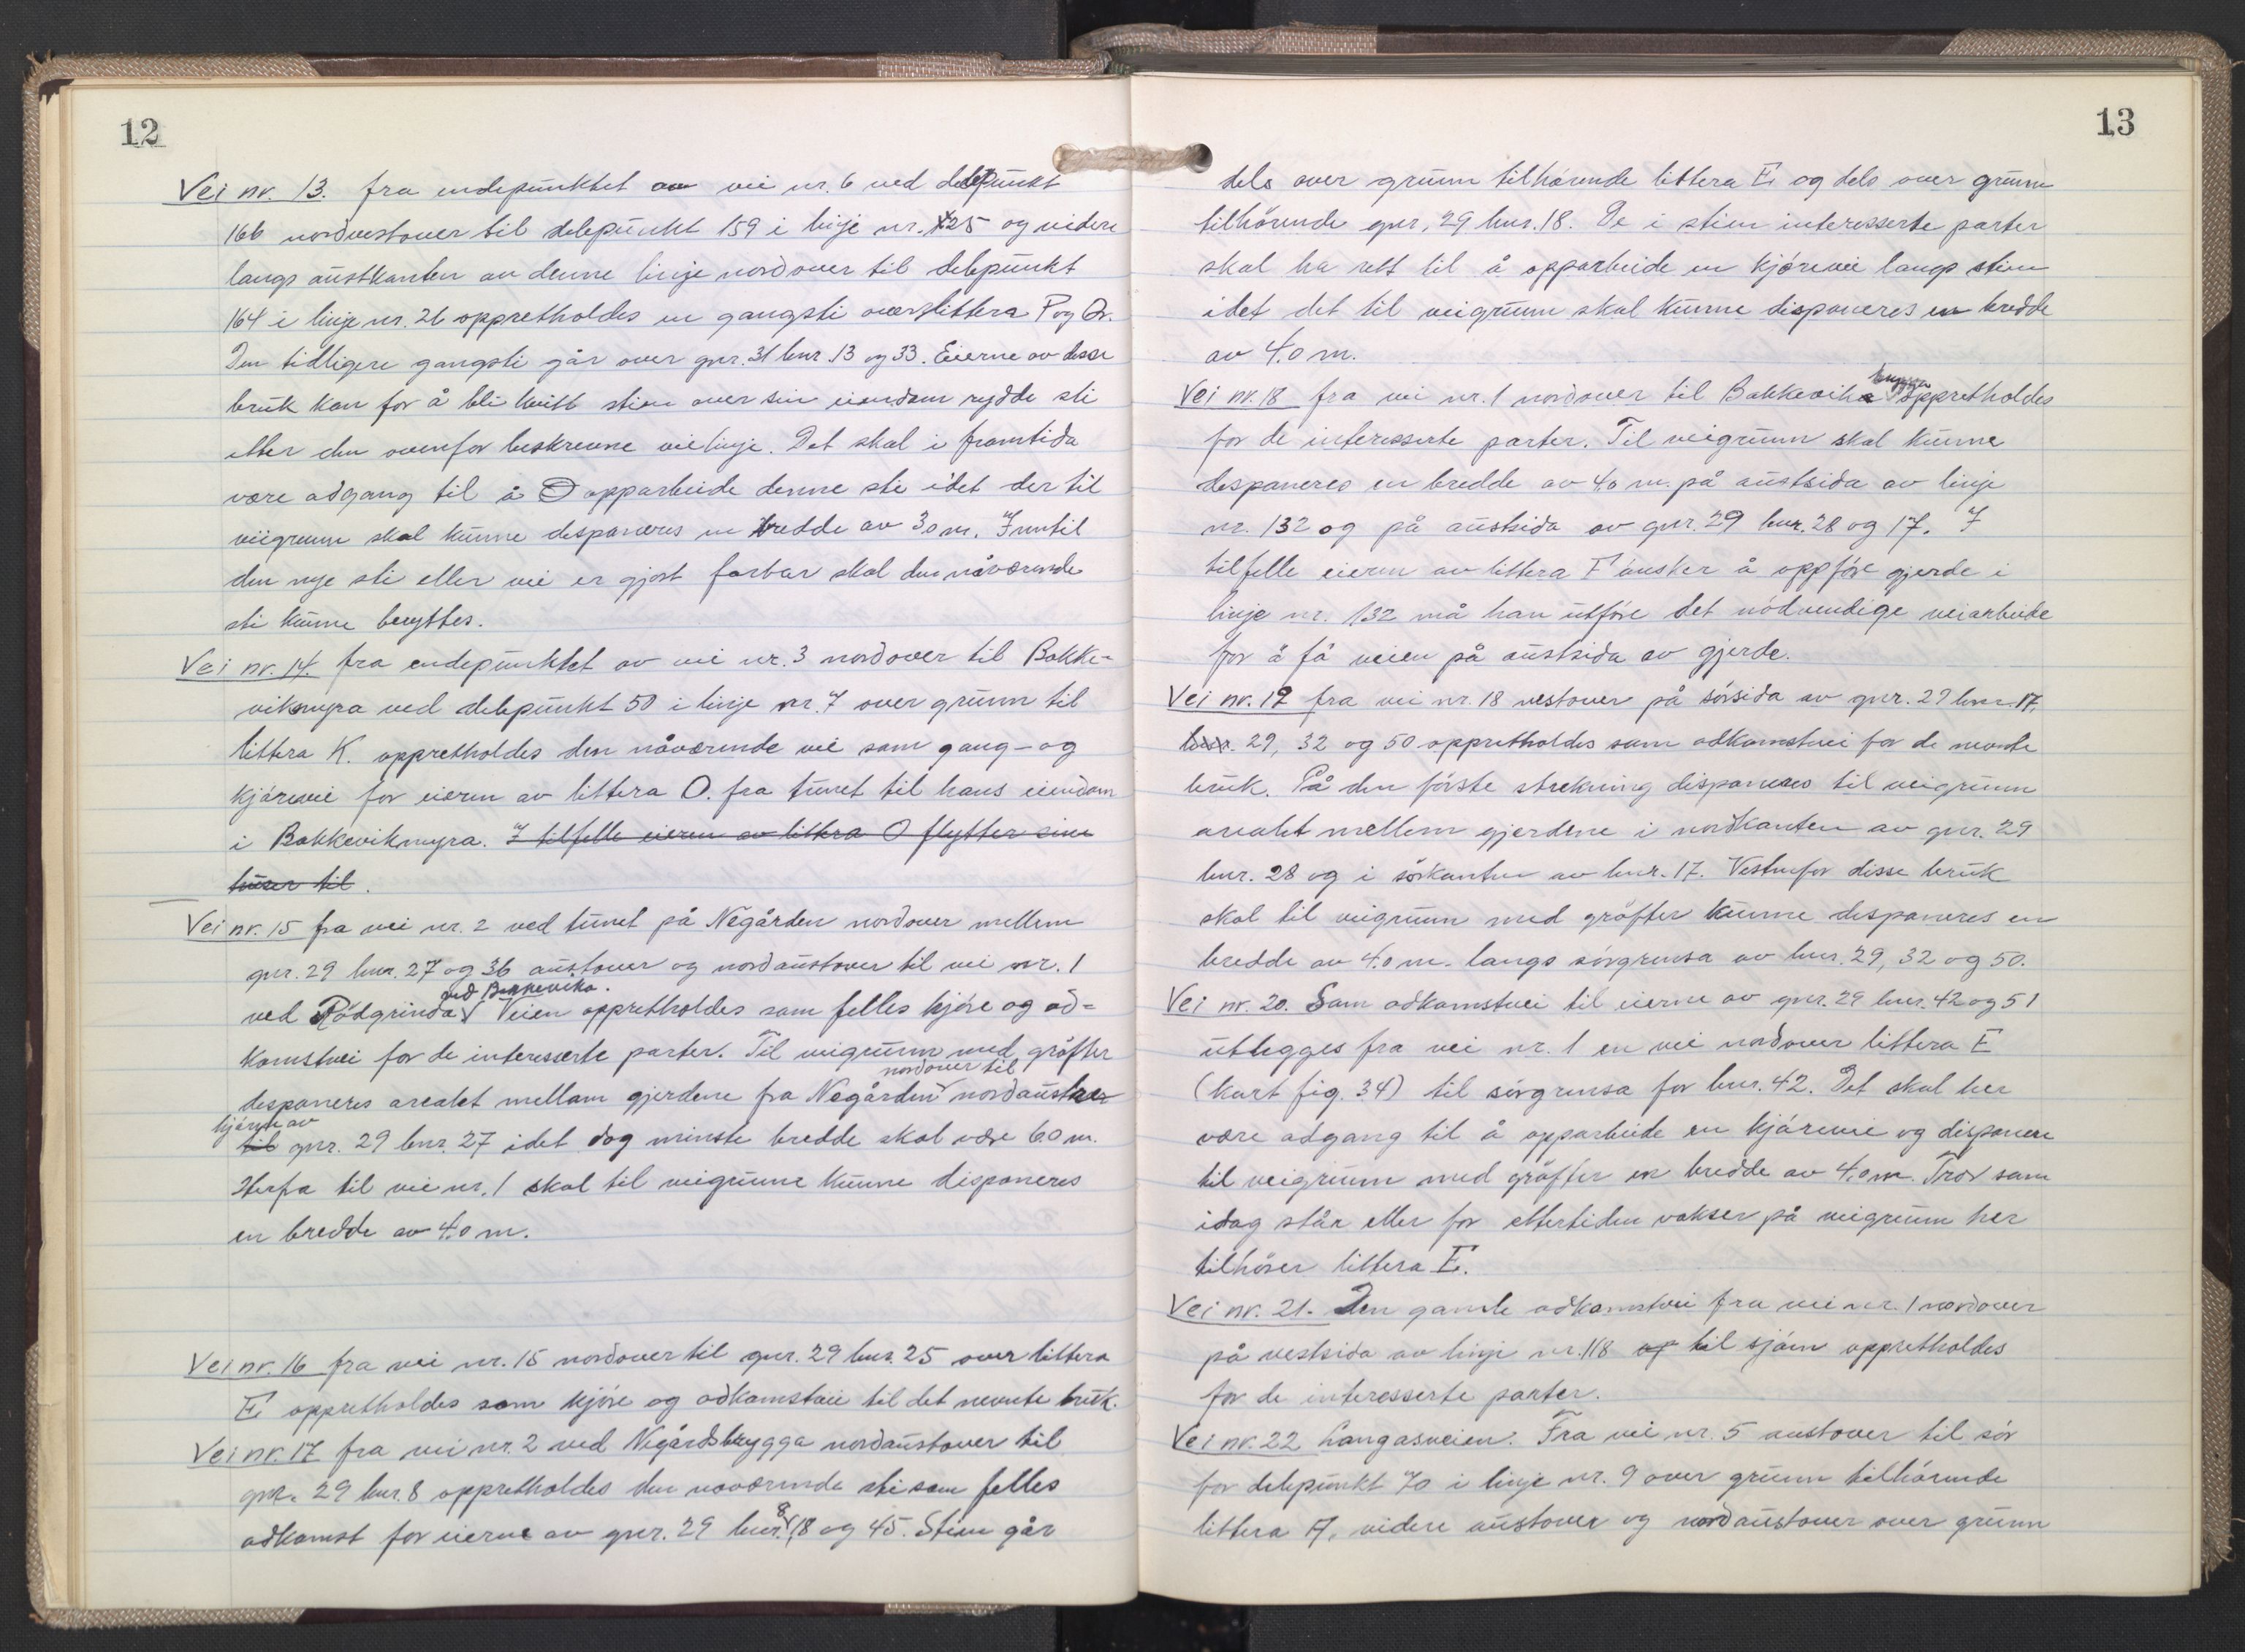 12
Vei nr. 13. fra endepunktet av vei nr. 6 ved delepunkt
166 nordvestover til delepunkt 159 i linje nr. 125 og videre
langs austkanten av denne linje nordover til delepunkt
164 i linje nr. 26 oppretholdes en gangsti over littera P og Q.
Den tidligere gangsti går over gnr. 31 bnr. 13 og 33. Eierne av disse
bruk kan for å bli kvitt stien over sin eiendom rydde sti
etter den ovenfor beskrevne veilinje. Det skal i framtida
være adgang til å opparbeide denne sti idet der til
veigrunn skal kunne disponeres en bredde av 3.0 m. Inntil
den nye sti eller vei er gjort farbar skal den nåværende
sti kunne benyttes.
Vei nr. 14. fra endepunktet av vei nr. 3 nordover til Bakke-
vikmyra ved delepunkt 50 i linje nr. 7 over grunn til
littera K. oppretholdes den nåværende vei som gang- og
kjørevei for eieren av littera O. fra tunet til hans eiendom
i Bakkevikmyra. I tilfelle eieren av littera O flytter sine
huser til.
Vei nr. 15 fra vei nr. 2 ved tunet på Negården nordover mellem
gnr. 29 bnr. 27 og 36 austover og nordaustover til vei nr. 1
ved Rödgrinda ved Bakkevika. Veien oppretholdes som felles kjøre og ad-
komstvei for de interesserte parter. Til veigrunn med gröfter
disponeres arealet mellom gjerdene fra Negården nordover til nordaust
hjørne av til gnr. 29 bnr. 27 idet dog minste bredde skal være 6.0 m.
Herfra til vei nr. 1 skal til veigrunn kunne disponeres
en bredde av 4.0 m.
Vei nr. 16 fra vei nr. 15 nordover til gnr. 29 bnr. 25 over littera
E oppretholdes som kjøre og adkomstvei til det nevnte bruk.
Vei nr. 17 fra vei nr. 2 ved Negårdsbrygga nordaustover til
gnr. 29 bnr. 8 oppretholdes den nåværende sti som felles
adkomst for eierne av gnr. 29 bnr. 8, 18 og 45. Stien går
13
dels over grunn tilhørende littera E og dels over grunn
tilhörende gnr. 29 bnr. 18. De i stien interesserte parter
skal ha rett til å opparbeide en kjørevei langs stien
idet det til veigrunn skal kunne disponeres en bredde
av 4.0 m.
Vei nr. 18 fra vei nr. 1 nordover til Bakkevika brygga oppretholdes
for de interesserte parter. Til veigrunn skal kunne
disponeres en bredde av 4.0 m. på austsida av linje
nr. 132 og på austsida av gnr. 29 bnr. 28 og 17. I
tilfelle eieren av littera F ønsker å oppföre gjerde i
linje nr. 132 må han utföre det nödvendige veiarbeide
for å få veien på austsida av gjerde.
Vei nr. 19 fra vei nr. 18 vestover på sörsida av gnr. 29 bnr. 17,
bnr. 29, 32 og 50 oppretholdes som adkomstvei for de nevnte
bruk. På den förste strekning disponeres til veigrunn
arealet mellem gjerdene i nordkanten av gnr. 29
bnr. 28 og i sörkanten av bnr. 17. Vestenfor disse bruk
skal til veigrunn med gröfter kunne disponeres en
bredde av 4.0 m. langs sörgrensa av bnr. 29, 32 og 50.
Vei nr. 20. Som adkomstvei til eierne av gnr. 29 bnr. 42 og 51
utlegges fra vei nr. 1 en vei nordover littera E
(kart fig. 34) til sörgrensa for bnr. 42. Det skal her
være adgang til å opparbeide en kjørevei og disponere
til veigrunn med gröfter en bredde av 4.0 m. Trær som
idag står eller for ettertiden vokser på veigrunn her
tilhörer littera E.
Vei nr. 21. Den gamle adkomstvei fra vei nr. 1 nordover
på vestsida av linje nr. 118 og til sjøen oppretholdes
for de interesserte parter.
Vei nr. 22 Langåsveien. Fra vei nr. 5 austover til sör
for delepunkt 70 i linje nr. 9 over grunn tilhörende
littera A, videre austover og nordaustover over grunn